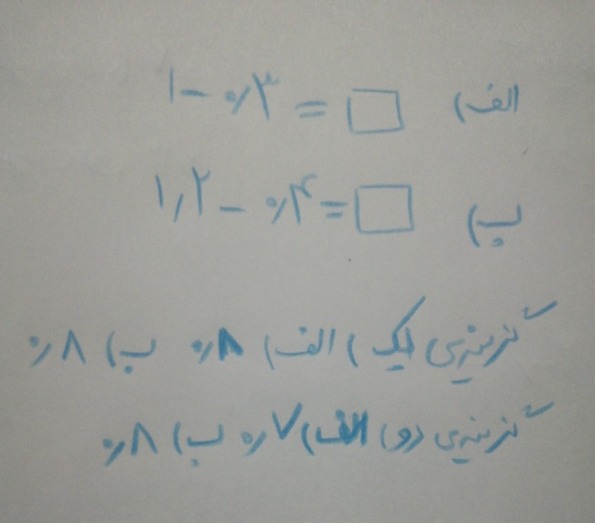 الف) ۱ - ۰٫۳ = □
ب) ۱٫۲ - ۰٫۴ = □
گزینه‌ی یک) الف) ۰٫۸ ب) ۰٫۸
گزینه‌ی دو) الف) ۰٫۷ ب) ۰٫۸